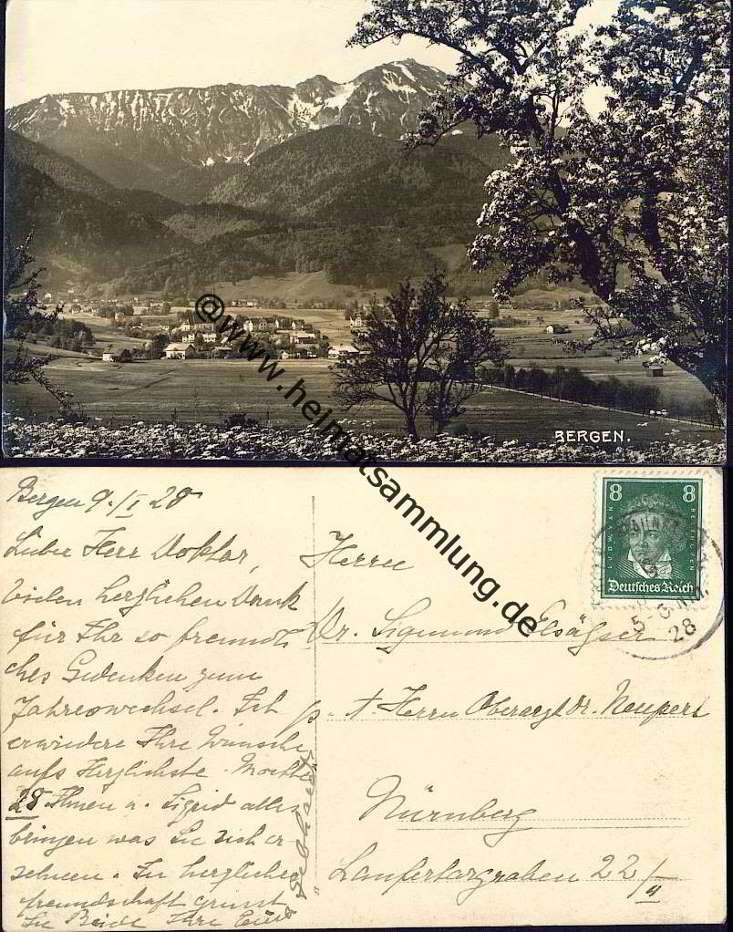 BERGEN.
© www.heimatsammlung.de
Bergen 9./I 28
Lieber Herr Doktor,
Vielen herzlichen Dank
für Ihr so freundli
ches Gedenken zum
Jahreswechsel. Ich
erwiedere Ihre Wünsche
aufs Herzlichste. Möchte
28 Ihnen u. Sigrid alles
bringen was Sie sich er
sehnen. In herzlicher
freundschaft grüsst
Sie Beide Ihre
8 8
LUDW. VAN BEETHOVEN
Deutsches Reich
28
Herrn
Dr. Sigmund Elsässer
p. A. Herrn Oberarzt Dr. Neupert
Nürnberg
Laufertorgraben 22/II